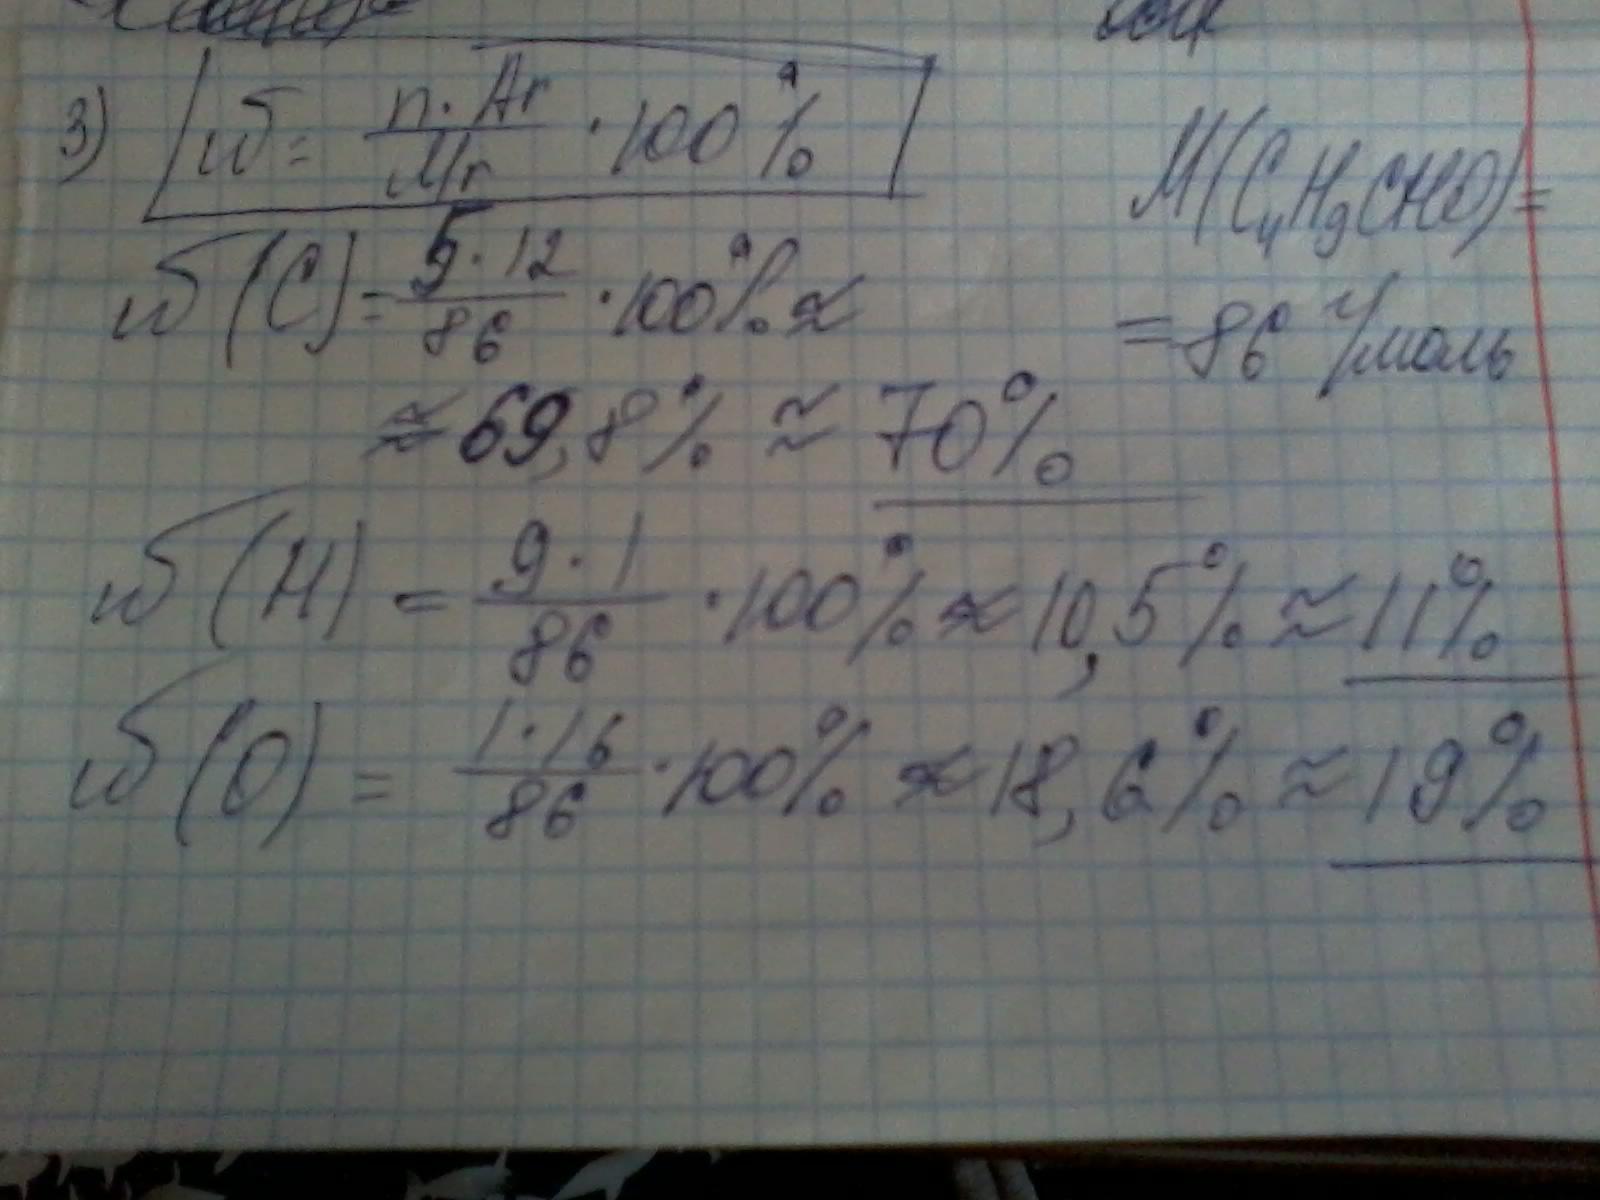 3) W = n · Ar / Mr · 100%
M(C₄H₉CHO) =
= 86 г/моль
W(C) = 5 · 12 / 86 · 100% ≈
≈ 69,8% ≈ 70%
W(H) = 9 · 1 / 86 · 100% ≈ 10,5% ≈ 11%
W(O) = 1 · 16 / 86 · 100% ≈ 18,6% ≈ 19%